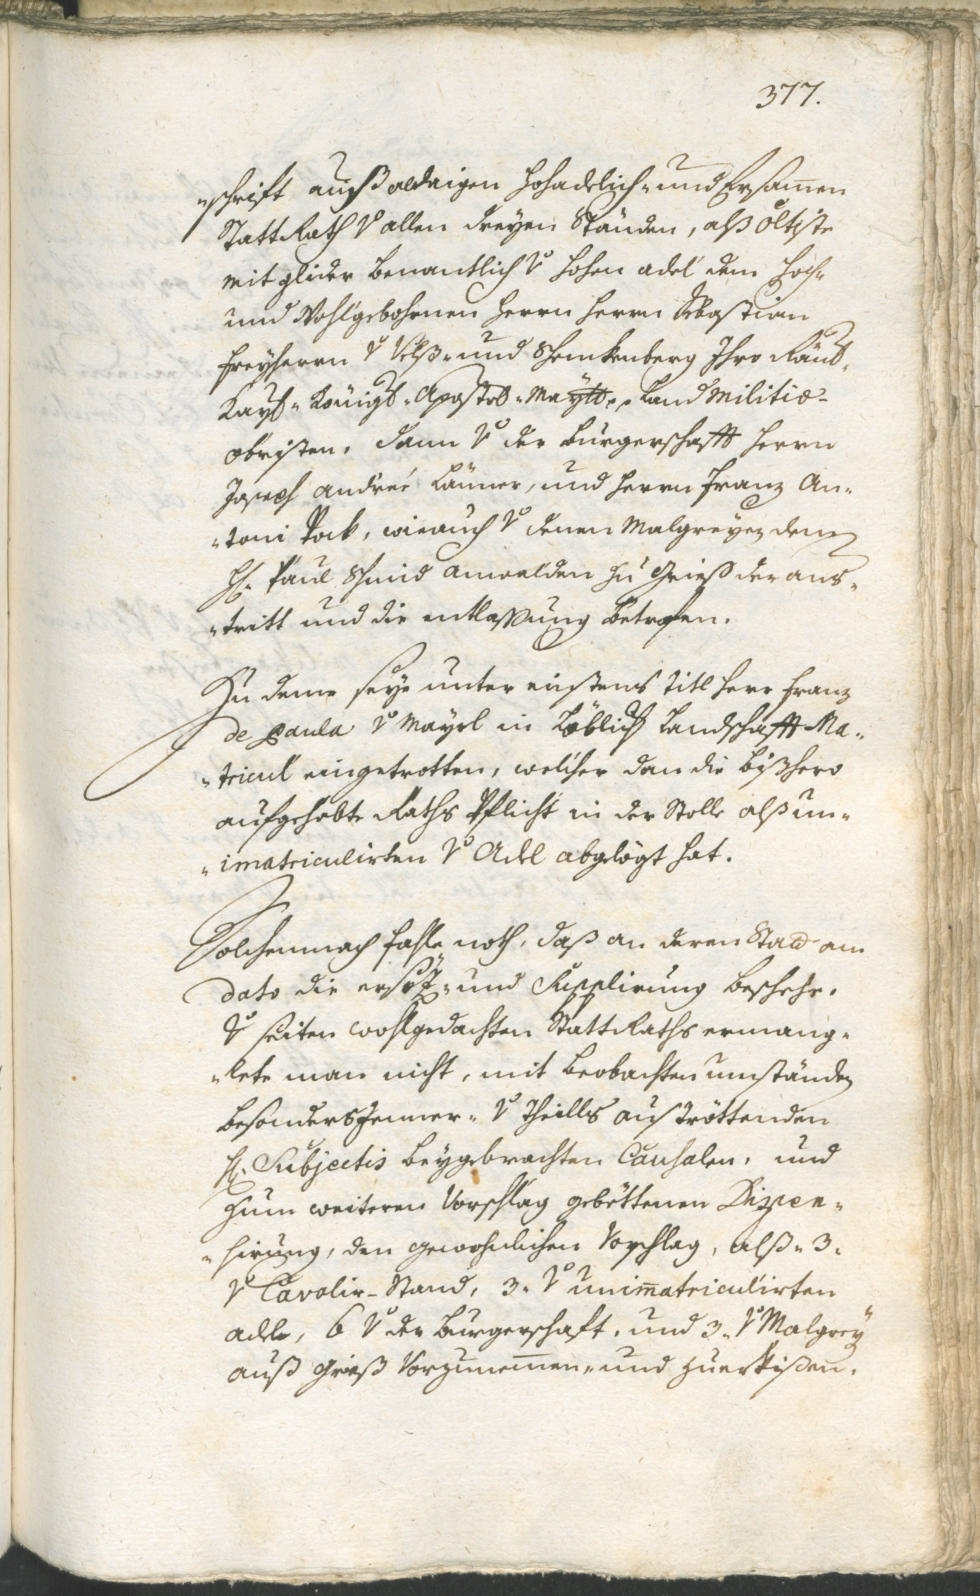 377.
-schrift auß aldaigen hohadelich- und Ersamen
StattRath v allen dreyen Ständen, alß öltiste
mitglider benantlich v hohen adel dem hoch-
und Wohlgebohrnen Herrn Herrn Sebastian
Freyherrn v Velß- und Schenkenberg Ihro Röm.
Kays. Königl. Apostol. Maytt. Land Militie-
obristen, dann v der Burgerschafft Herrn
Joseph Andreé Länner, und Herrn Franz An-
-toni Pock, wieauch v denen Malgreyen dem
H. Paul Schmid anwalden zu Grieß der aus-
-tritt und die entlassung betrofen.
Zu deme seye unter einstens Titl Herr Franz
de Paula v Mayrl in Löblich Landschafft Ma-
-tricul eingetrotten, welcher dan die bißhero
aufgehabte Raths Pflicht in der Stölle alß un-
-imatriculirten v Adel abgelögt hat.
Solchemnach fahle noth, daß an deren Statt am
dato die ersöz- und Supplirung beschehe.
v seiten wohlgedachten StattRaths ermang-
-lete man nicht, mit beobachten umständen
besonders Jenner- v Theills auströttenden
H. Subjectis beygebrachten Causalen, und
zum weiteren Vorschlag gebettenen Dispen-
-sirung, den gewohnlichen Vorschlag, alß 3.
v Cavalir-Stand, 3. v unimatriculirten
adel, 6 v der Burgerschaft, und 3. v Malgrey
auß Grieß Vorzunemen- und zuerkißen.